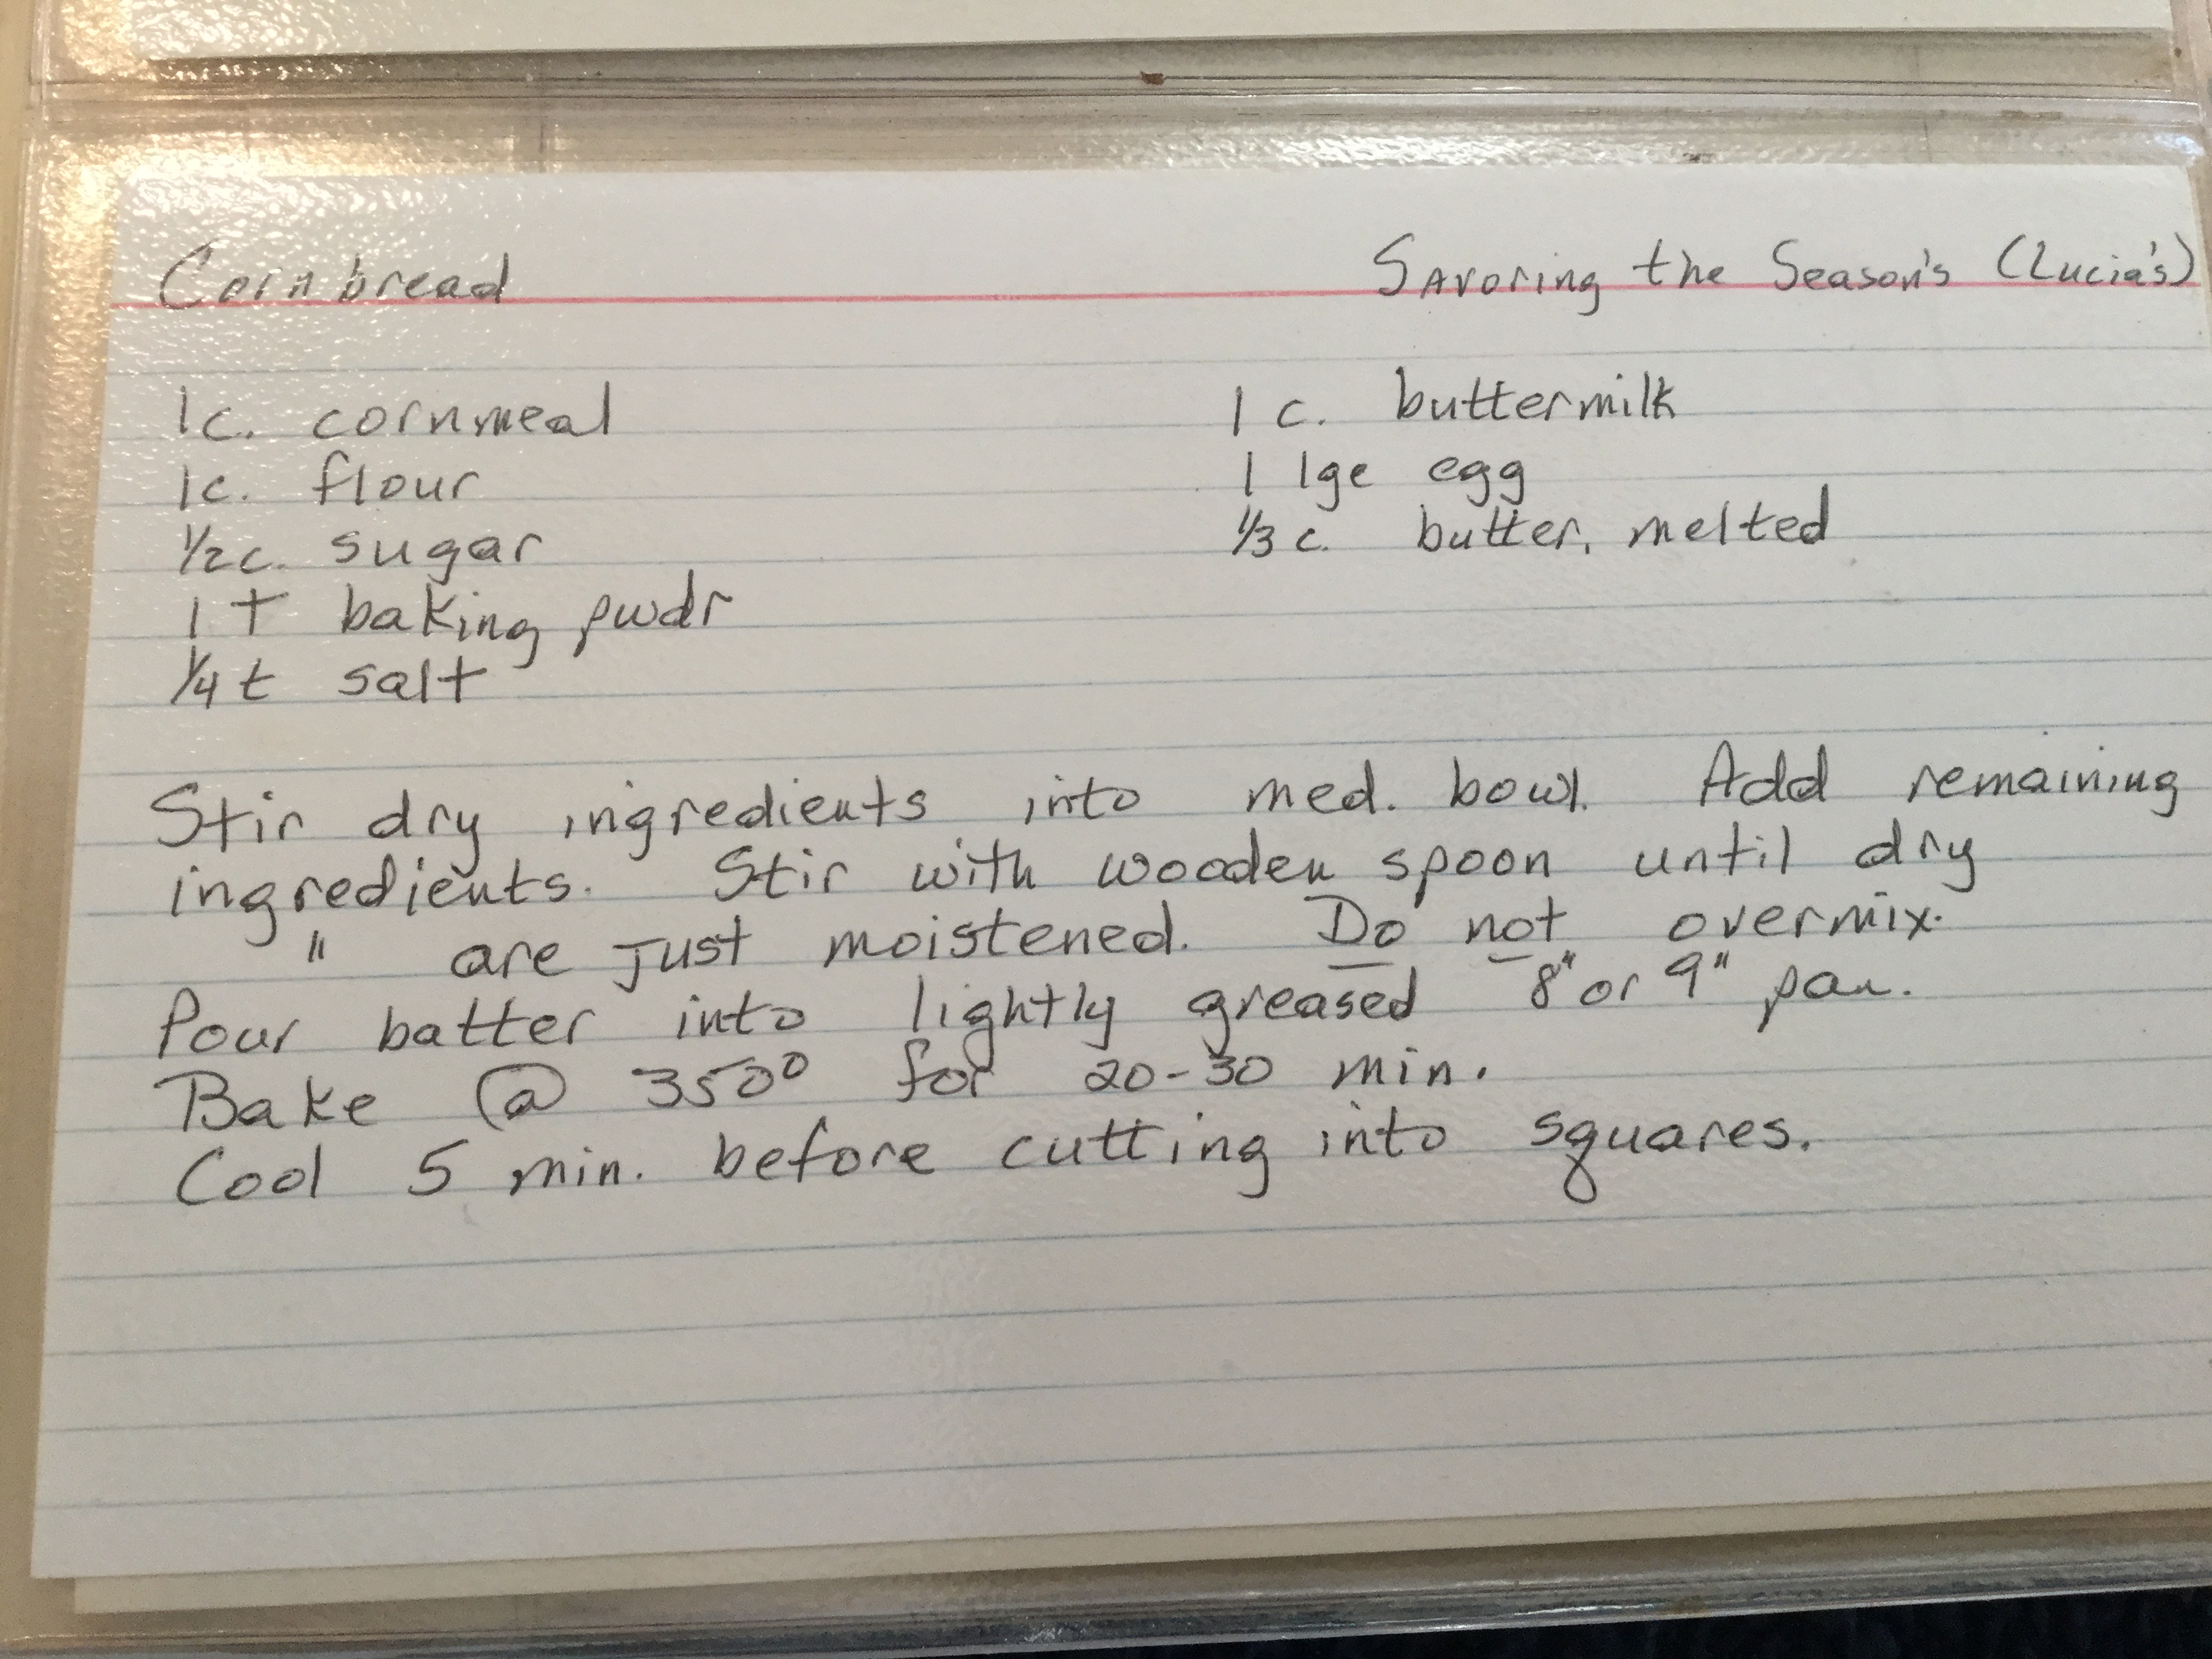 Cornbread
Savoring the Season's (Lucia's)
1c. cornmeal
1c. flour
1/2c. sugar
1 T baking pwdr
1/4 t salt
1 c. buttermilk
1 lge egg
1/3 c. butter, melted
Stir dry ingredients into med. bowl. Add remaining
ingredients. Stir with wooden spoon until dry
" are just moistened. Do not overmix.
Pour batter into lightly greased 8" or 9" pan.
Bake @ 350° for 20-30 min.
Cool 5 min. before cutting into squares.